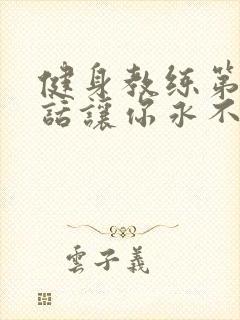 健身教练第
話讓你永不
雲子義